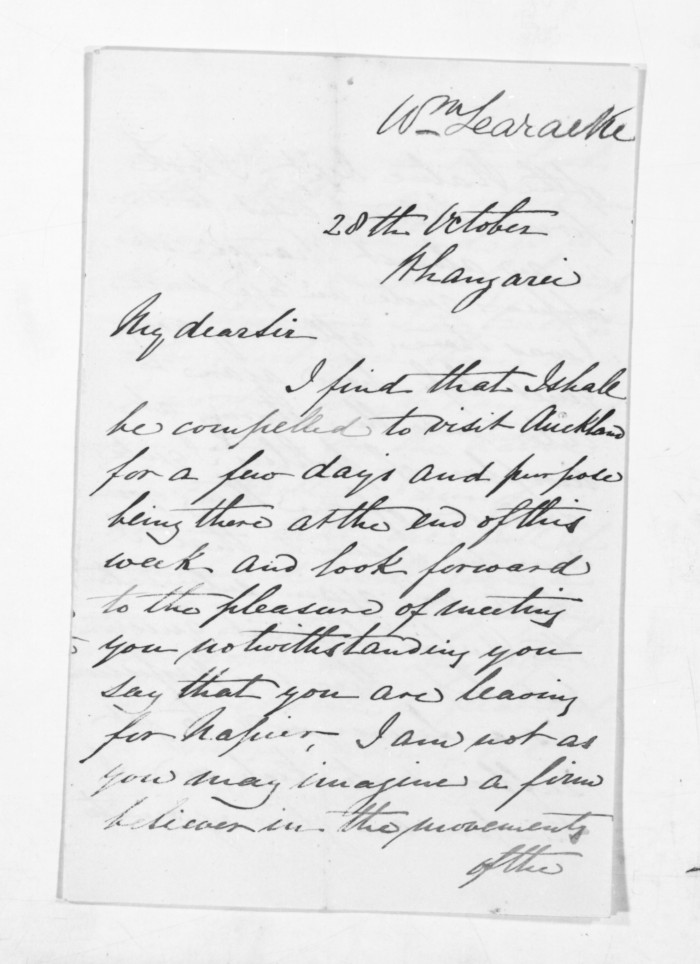 Wm Searacke
28th October
Whangarei
My dear Sir
I find that I shall
be compelled to visit Auckland
for a few days and purpose
being there at the end of this
week and look forward
to the pleasure of meeting
you notwithstanding you
say that you are leaving
for Napier, I am not as
you may imagine a firm
believer in the movements
of the